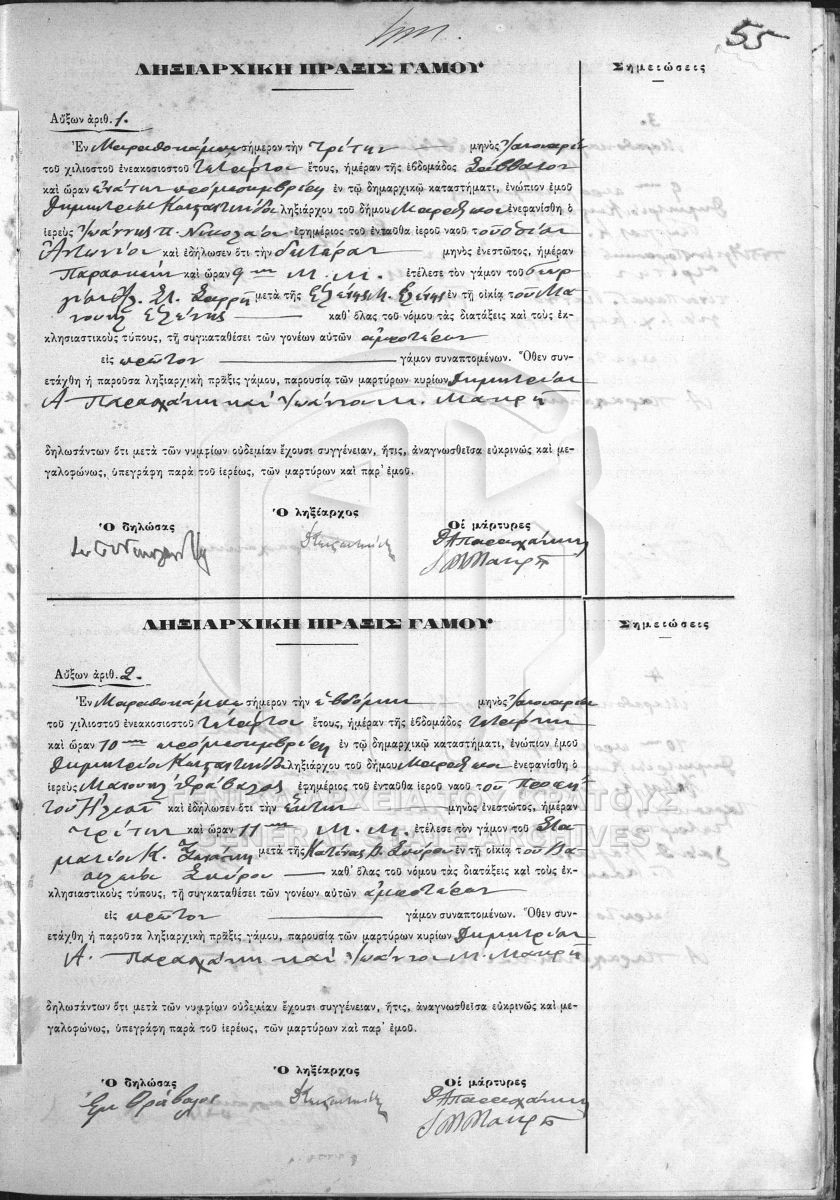 55
ΛΗΞΙΑΡΧΙΚΗ ΠΡΑΞΙΣ ΓΑΜΟΥ
Σημειώσεις
Αὔξων ἀριθ. 1.
Ἐν Μαραθοκάμπῳ σήμερον τὴν τρίτην μηνὸς Ἰανουαρίου
τοῦ χιλιοστοῦ ἐνεακοσιοστοῦ τετάρτου ἔτους, ἡμέραν τῆς ἑβδομάδος Σάββατον
καὶ ὥραν ἐνάτην προμεσημβρινὴν ἐν τῷ δημαρχικῷ καταστήματι, ἐνώπιον ἐμοῦ
Δημητρίου ληξιάρχου τοῦ δήμου ἐνεφανίσθη ὁ
ἱερεὺς Ἰωάννης Π. Νικολάου ἐφημέριος τοῦ ἐνταῦθα ἱεροῦ ναοῦ τοῦ Ὁσίου
Ἀντωνίου καὶ ἐδήλωσεν ὅτι τὴν δευτέραν μηνὸς ἐνεστῶτος, ἡμέραν
Παρασκευὴν καὶ ὥραν 9ην Μ. Μ. ἐτέλεσε τὸν γάμον τοῦ
μετὰ τῆς ἐν τῇ οἰκίᾳ τοῦ Μα
νουὴλ καθ' ὅλας τοῦ νόμου τὰς διατάξεις καὶ τοὺς ἐκ-
κλησιαστικοὺς τύπους, τῇ συγκαταθέσει τῶν γονέων αὐτῶν ἀμφοτέρων
εἰς πρῶτον γάμον συναπτομένων. Ὅθεν συν-
ετάχθη ἡ παροῦσα ληξιαρχικὴ πρᾶξις γάμου, παρουσίᾳ τῶν μαρτύρων κυρίων Δημητρίου
Α. Παρασχάκη καὶ Ἰωάννου Μ. Μακρῆ
δηλωσάντων ὅτι μετὰ τῶν νυμφίων οὐδεμίαν ἔχουσι συγγένειαν, ἥτις, ἀναγνωσθεῖσα εὐκρινῶς καὶ με-
γαλοφώνως, ὑπεγράφη παρὰ τοῦ ἱερέως, τῶν μαρτύρων καὶ παρ' ἐμοῦ.
Ὁ δηλώσας
Ὁ ληξίαρχος
Οἱ μάρτυρες
ΛΗΞΙΑΡΧΙΚΗ ΠΡΑΞΙΣ ΓΑΜΟΥ
Σημειώσεις
Αὔξων ἀριθ. 2.
Ἐν Μαραθοκάμπῳ σήμερον τὴν ἑβδόμην μηνὸς Ἰανουαρίου
τοῦ χιλιοστοῦ ἐνεακοσιοστοῦ τετάρτου ἔτους, ἡμέραν τῆς ἑβδομάδος τετάρτην
καὶ ὥραν 10ην προμεσημβρινὴν ἐν τῷ δημαρχικῷ καταστήματι, ἐνώπιον ἐμοῦ
Δημητρίου ληξιάρχου τοῦ δήμου ἐνεφανίσθη ὁ
ἱερεὺς Μανουὴλ Θράβαλος ἐφημέριος τοῦ ἐνταῦθα ἱεροῦ ναοῦ τοῦ Προφή
του Ἠλιοῦ καὶ ἐδήλωσεν ὅτι τὴν ἕκτην μηνὸς ἐνεστῶτος, ἡμέραν
τρίτην καὶ ὥραν 11ην Μ. Μ. ἐτέλεσε τὸν γάμον τοῦ Στα
ματίου Κ. μετὰ τῆς Κατίνας Β. Σπύρου ἐν τῇ οἰκίᾳ τοῦ Βα
σιλείου Σπύρου καθ' ὅλας τοῦ νόμου τὰς διατάξεις καὶ τοὺς ἐκ-
κλησιαστικοὺς τύπους, τῇ συγκαταθέσει τῶν γονέων αὐτῶν ἀμφοτέρων
εἰς πρῶτον γάμον συναπτομένων. Ὅθεν συν-
ετάχθη ἡ παροῦσα ληξιαρχικὴ πρᾶξις γάμου, παρουσίᾳ τῶν μαρτύρων κυρίων Δημητρίου
Α. Παρασχάκη καὶ Ἰωάννου Μ. Μακρῆ
δηλωσάντων ὅτι μετὰ τῶν νυμφίων οὐδεμίαν ἔχουσι συγγένειαν, ἥτις, ἀναγνωσθεῖσα εὐκρινῶς καὶ με-
γαλοφώνως, ὑπεγράφη παρὰ τοῦ ἱερέως, τῶν μαρτύρων καὶ παρ' ἐμοῦ.
Ὁ δηλώσας
Ὁ ληξίαρχος
Οἱ μάρτυρες
Ἐμ Θράβαλος